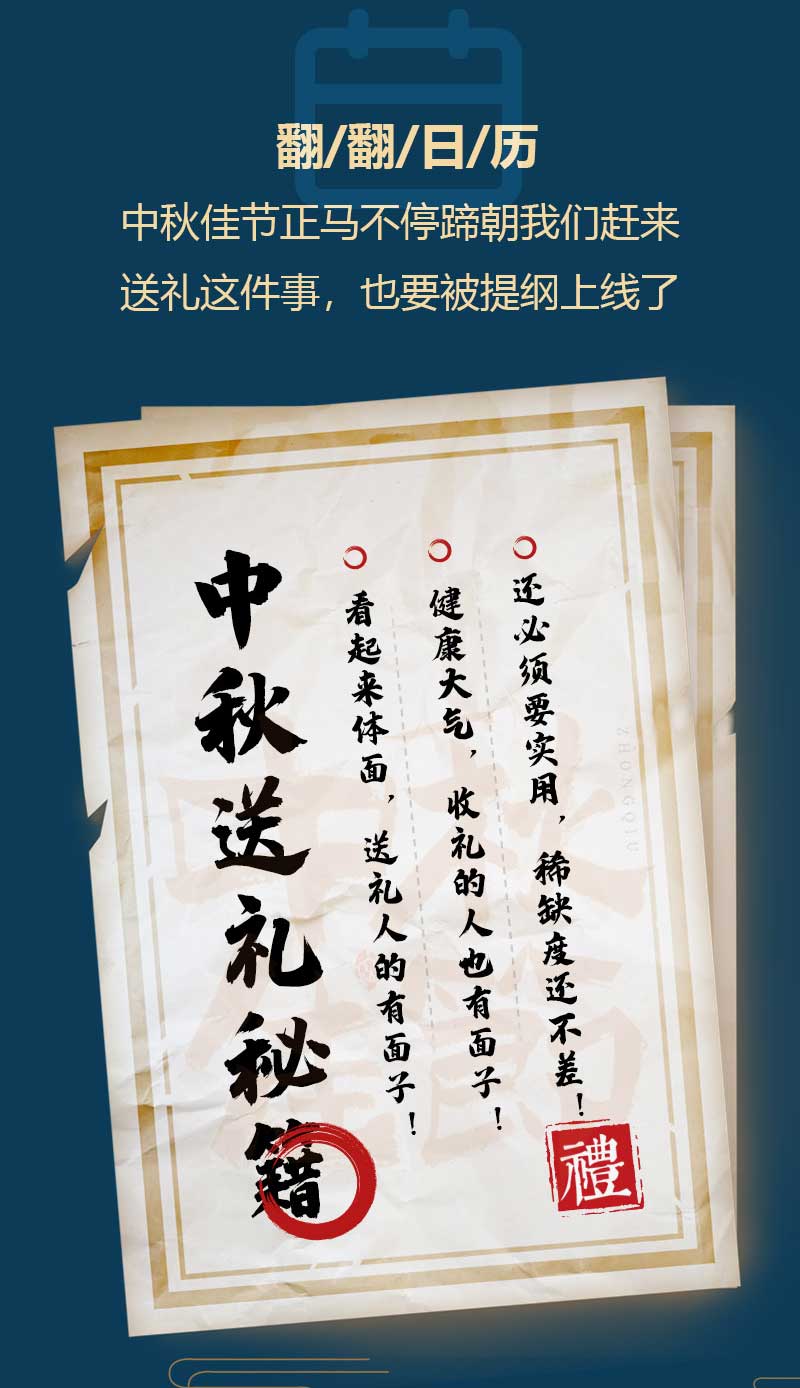 翻/翻/日/历
中秋佳节正马不停蹄朝我们赶来
送礼这件事，也要被提纲上线了
中秋送礼秘籍
看起来体面，送礼人的有面子！
健康大气，收礼的人也有面子！
还必须要实用，稀缺度还不差！
ZHONGQIU
中秋
佳节
禮